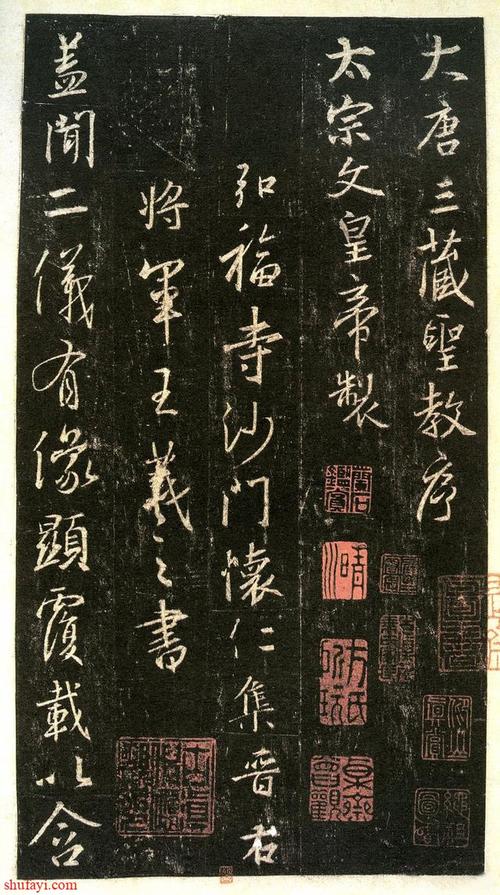 大唐三藏聖教序
太宗文皇帝製
弘福寺沙門懷仁集晉右
將軍王羲之書
蓋聞二儀有像顯覆載以含
shufayi.com